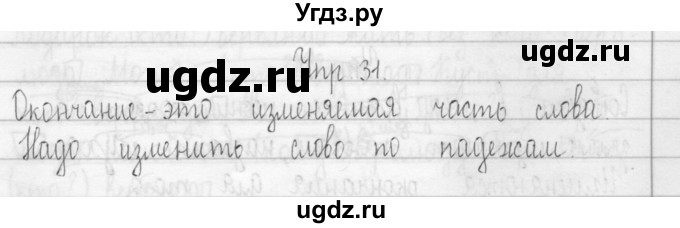 Угдз.ру
Упр 31
ugdz.ru
ugdz.ru
Окончание - это изменяемая часть слова.
Надо изменить слово по падежам.
ugdz.ru
ugdz.ru